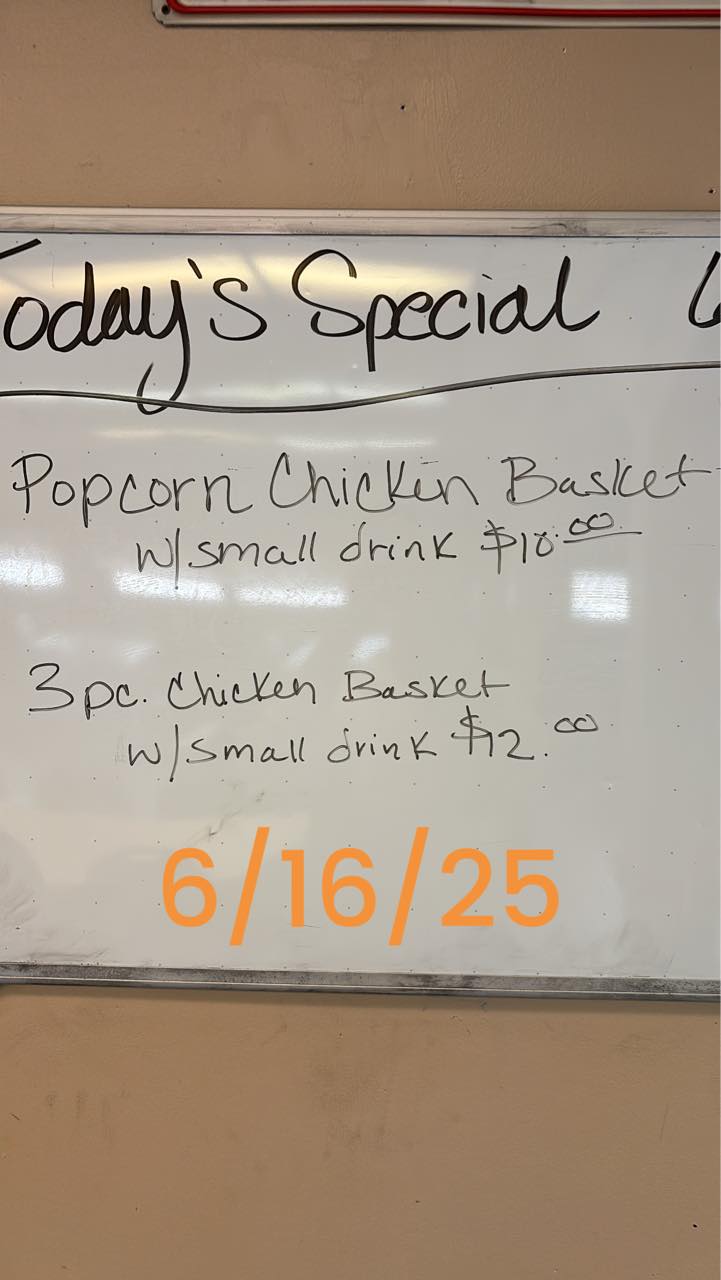 Today's Special 6
Popcorn Chicken Basket
w/small drink $10.00
3pc. Chicken Basket
w/small drink $12.00
6/16/25